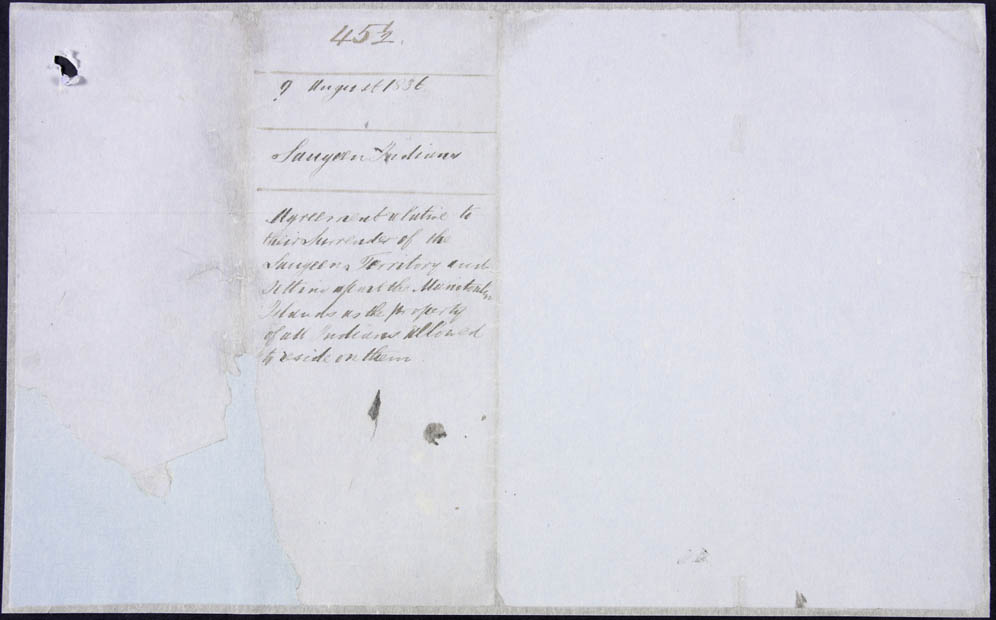 45½.
9 August 1836
Saugeen Indians
Agreement relative to
their surrender of the
Saugeen Territory and
setting apart the Manitoulin
Islands as the property
of all Indians allowed
to reside on them.